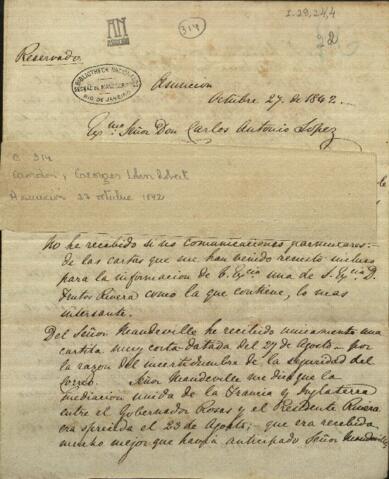 I-29,24,4
AN
ASUNCION
314
22
Reservado
BIBLIOTHECA NACIONAL
RIO DE JANEIRO
Asuncion
Octubre 27. de 1842.
Exmo Señor Don Carlos Antonio López
C 314
Gordon, Georges John Robert
Asunción 27 octubre 1842
No he recibido si no comunicaciones particulares:
de las cartas que me han venido remito incluso
para la informacion de V. Excia una de S. Excia D.
Frutos Rivera como la que contiene, lo mas
interesante.
Del Señor Mandeville he recibido unicamente una
cartita muy corta datada del 27 de Agosto - por
la razon del incertidumbre de la seguridad del
correo. Señor Mandeville me dice que la
mediacion unida de la Francia y Inglaterra
entre el Gobernador Rosas y el Presidente Rivera
era el 23 de Agosto; que era recebida
mucho mejor que havia anticipado Señor Mandeville